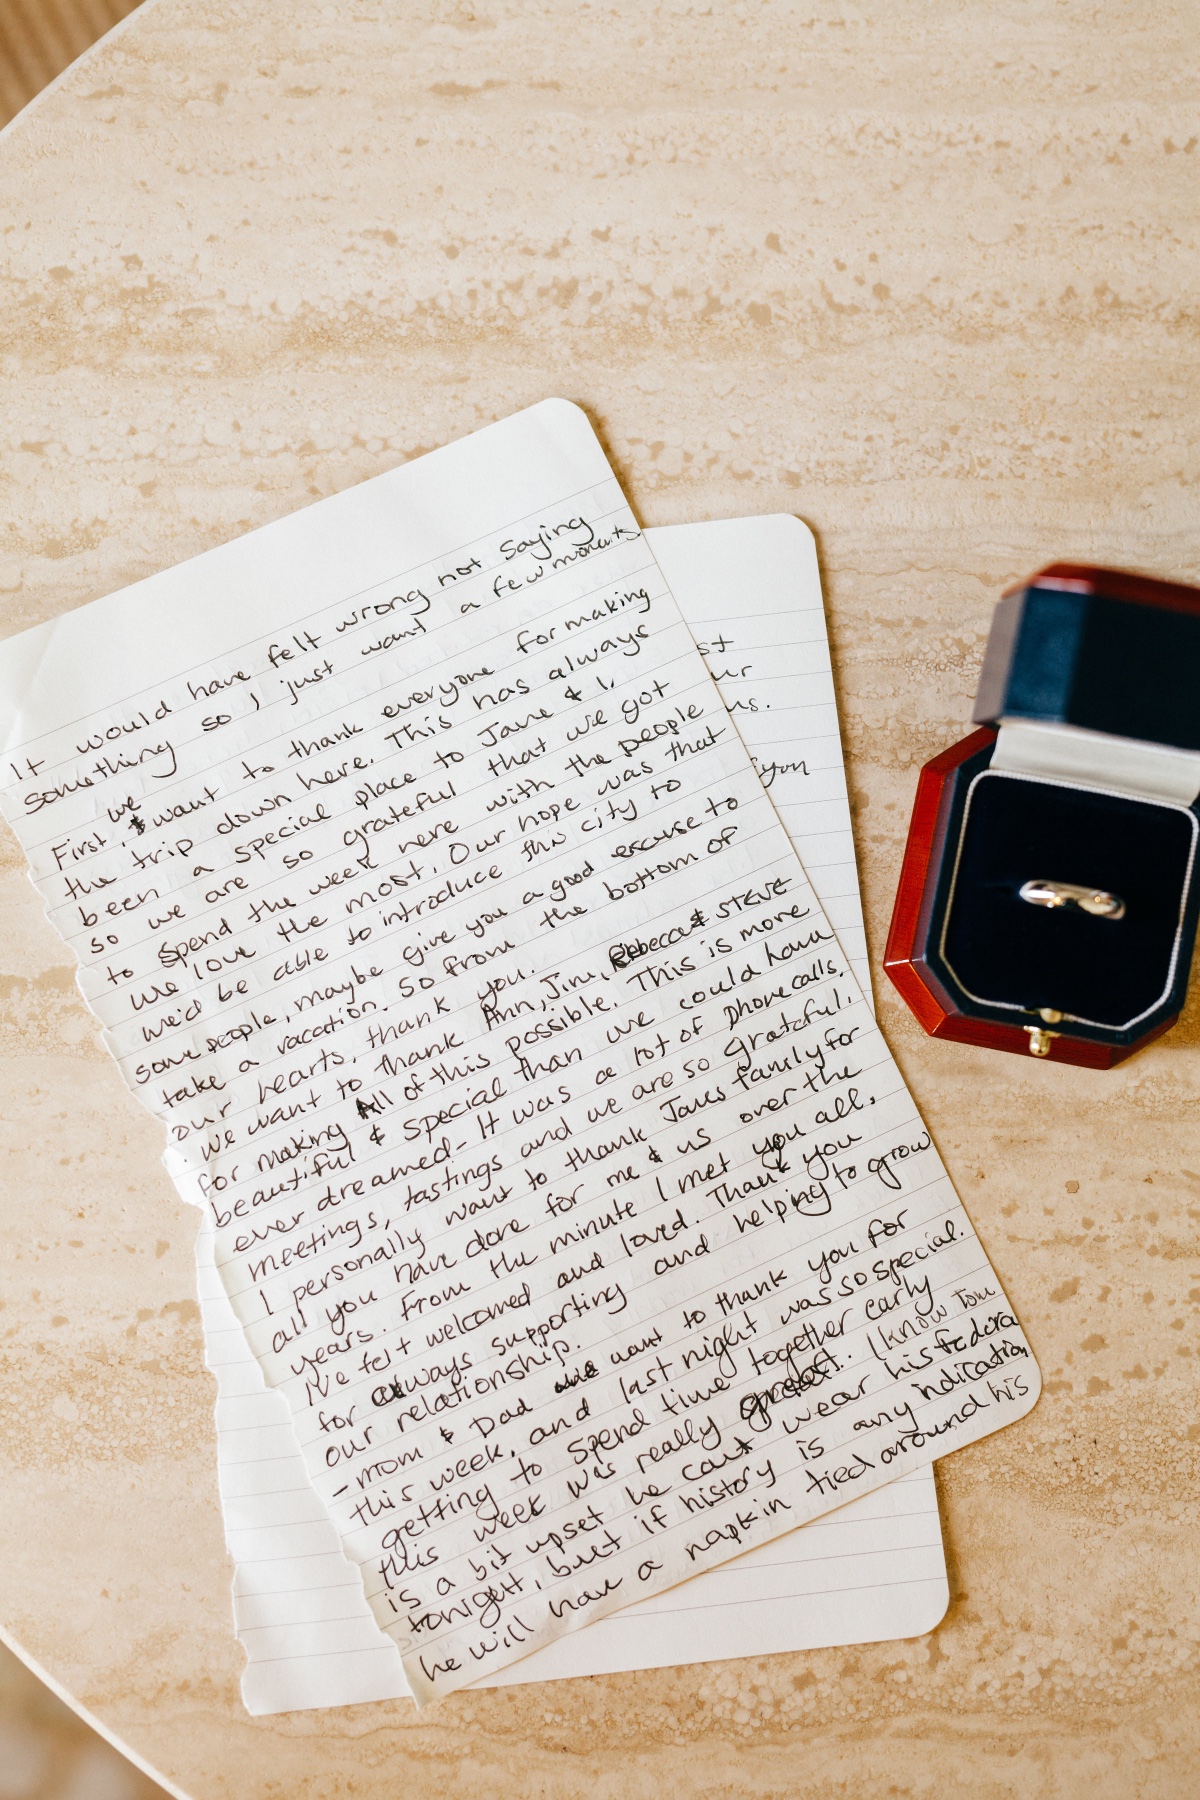 It would have felt wrong not saying
something so I just want a few moments
First, we want to thank everyone for making
the trip down here. This has always
been a special place to Jane & I.
so we are so grateful that we got
to spend the week here with the people
we love the most. Our hope was that
we'd be able to introduce this city to
some people, maybe give you a good excuse to
take a vacation. So from the bottom of
our hearts, thank you.
we want to thank Ann, Jim, Rebecca & STEVE
for making All of this possible. This is more
beautiful & special than we could have
ever dreamed - It was a lot of phone calls,
meetings, tastings and we are so grateful.
I personally want to thank Janes family for
all you have done for me & us over the
years. From the minute I met you all,
I've felt welcomed and loved. Thank you
for always supporting and helping to grow
our relationship.
- mom & Dad want to thank you for
this week, and last night was so special.
getting to spend time together early
this week was really great. I know Tom
is a bit upset he can't wear his fedora
tonight, but if history is any indication
he will have a napkin tied around his
st
ur
us.
you